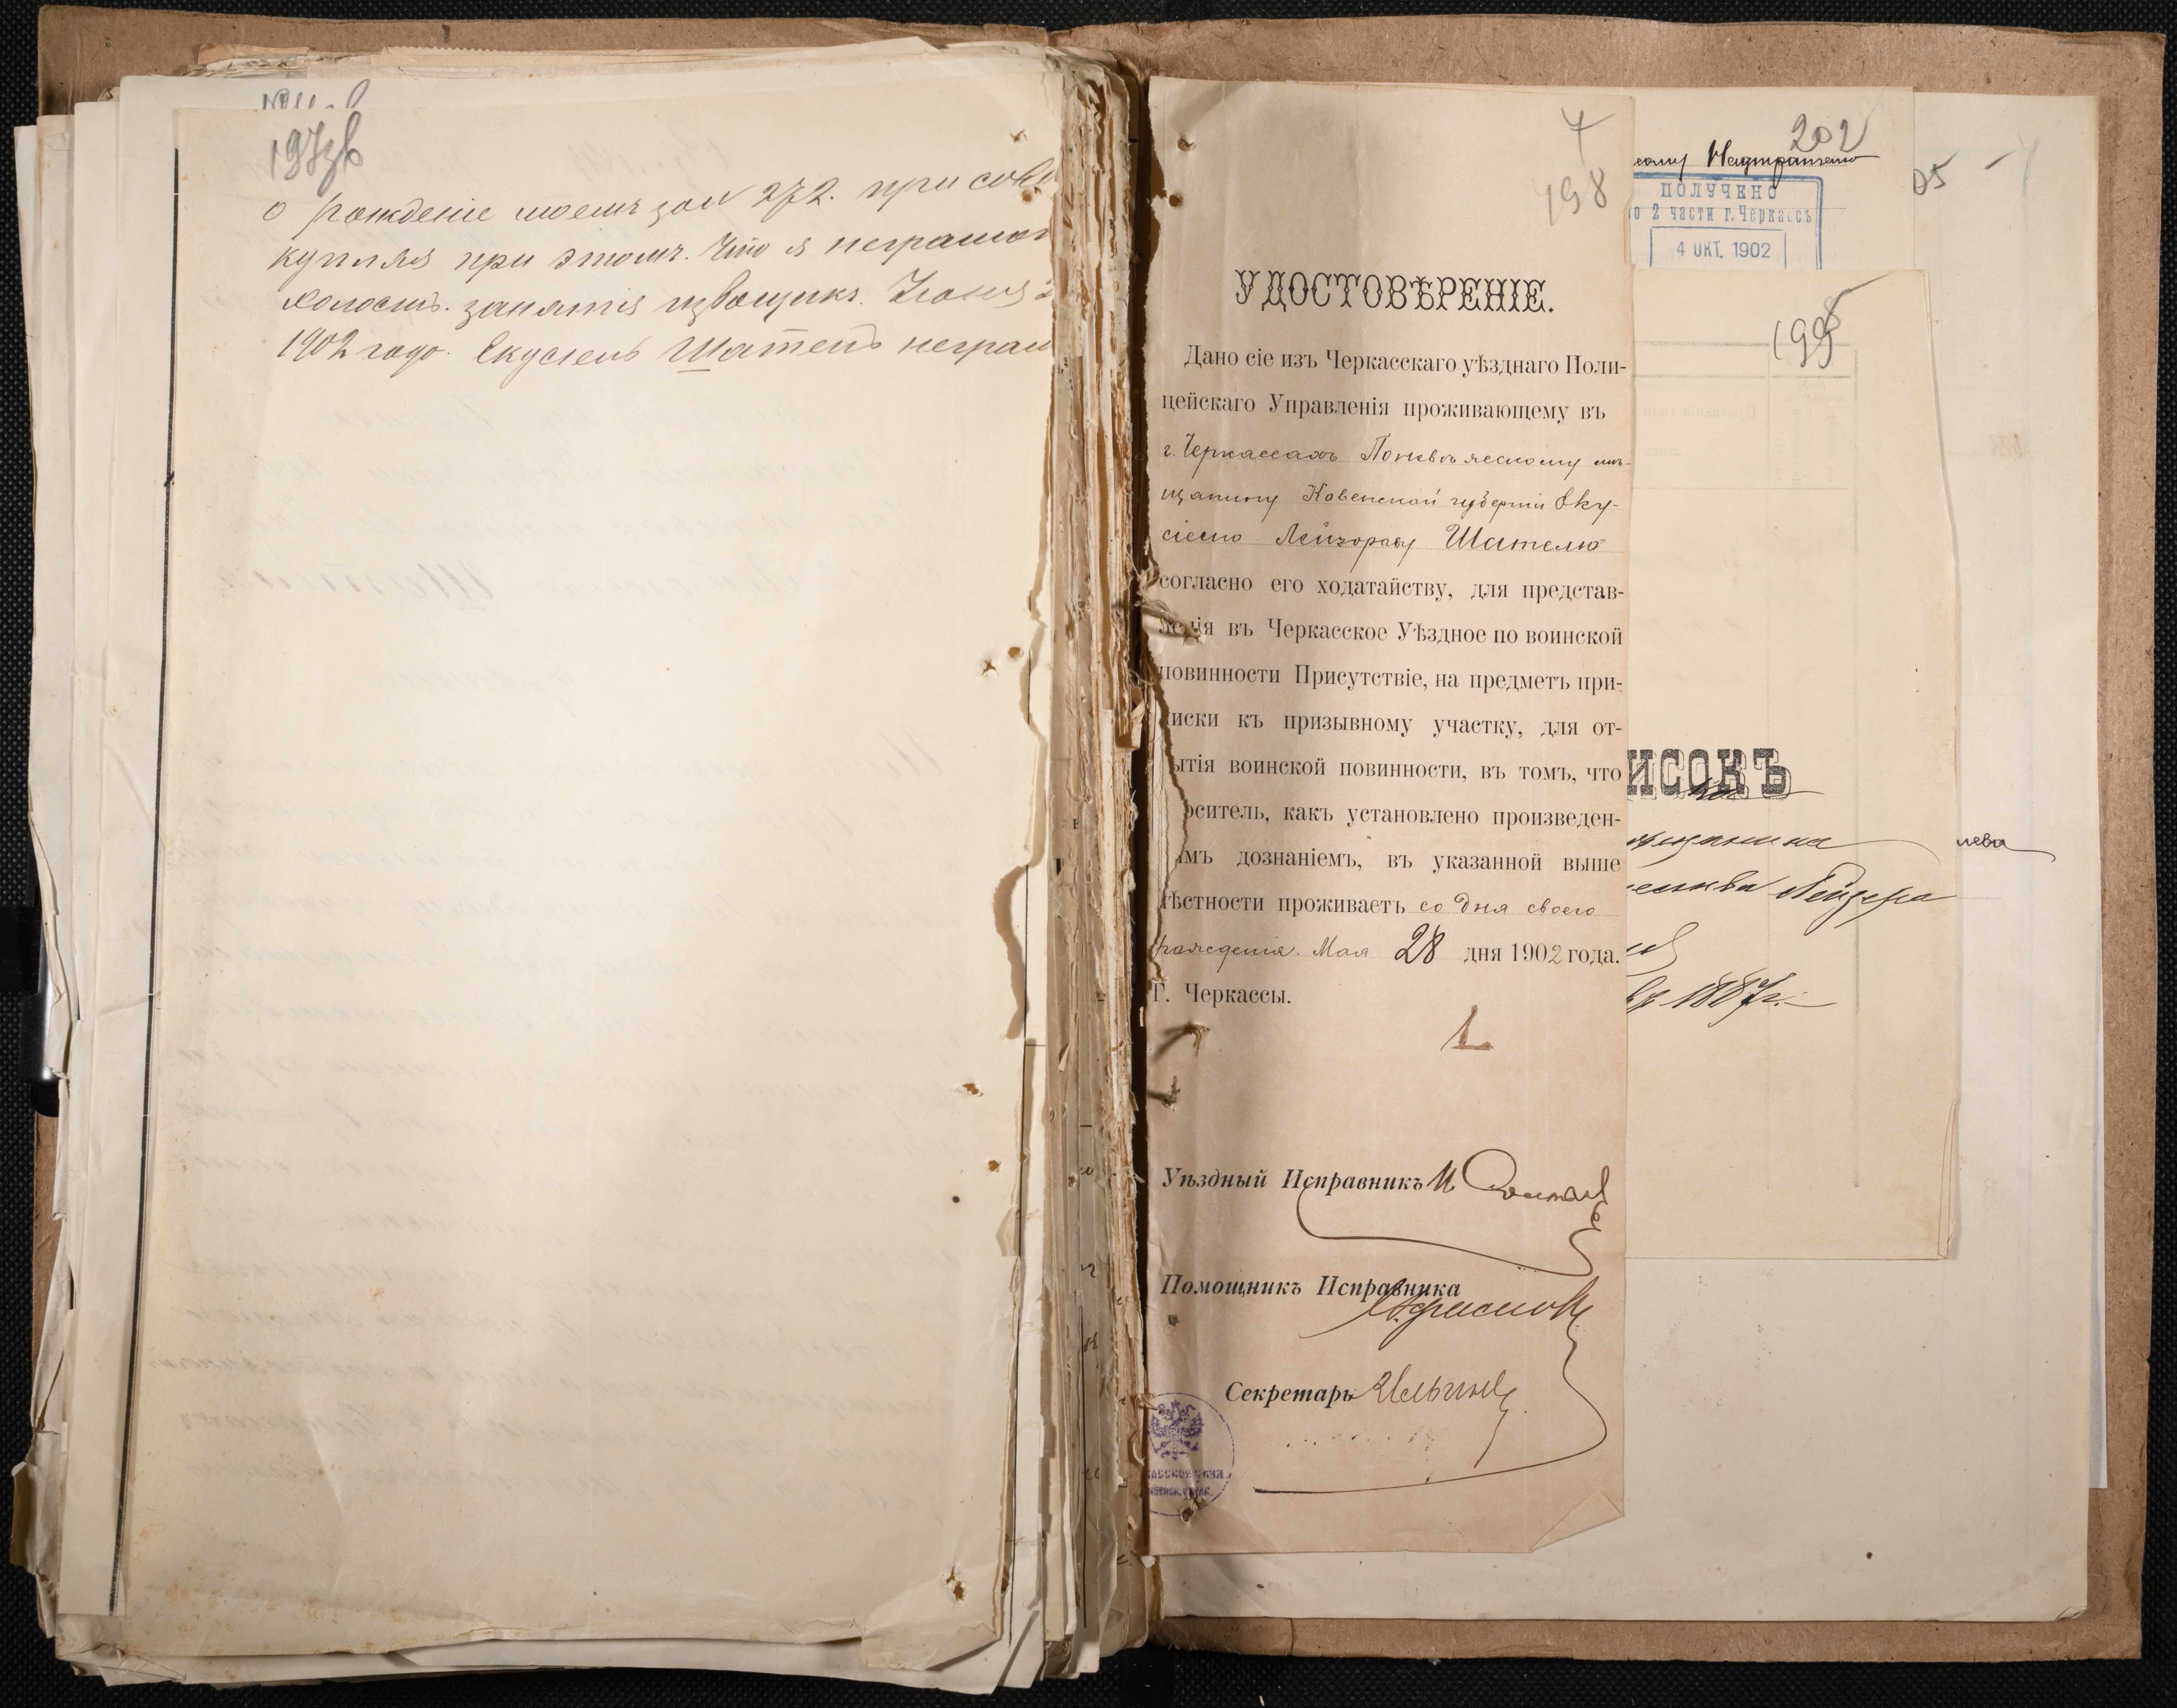 197зв
о рожденіе моемъ зам 272. при сово
купляя при этомъ. что я неграмот
холостъ. занятія извощикъ. Іюня 2
1902 года. Екусіель Шатель неграм
7
198
УДОСТОВѢРЕНІЕ.
Дано сіе изъ Черкасскаго уѣзднаго Поли-
цейскаго Управленія проживающему въ
г. Черкассахъ Поневѣжскому мѣ-
щанину Ковенской губерніи Еку-
сіелю Лейзорову Шателю
согласно его ходатайству, для представ-
ленія въ Черкасское Уѣздное по воинской
повинности Присутствіе, на предметъ при-
писки къ призывному участку, для от-
бытія воинской повинности, въ томъ, что
роситель, какъ установлено произведен-
ымъ дознаніемъ, въ указанной выше
ѣстности проживаетъ со дня своего
рожденія. Мая 28 дня 1902 года.
Г. Черкассы.
Уѣздный Исправникъ
Помощникъ Исправника
Секретарь Ильинъ
202
ПОЛУЧЕНО
2 части г. Черкассъ
4 ОКТ. 1902
05
199
ИСОКЪ
мѣщанина
Лейзера
1887г.
лева